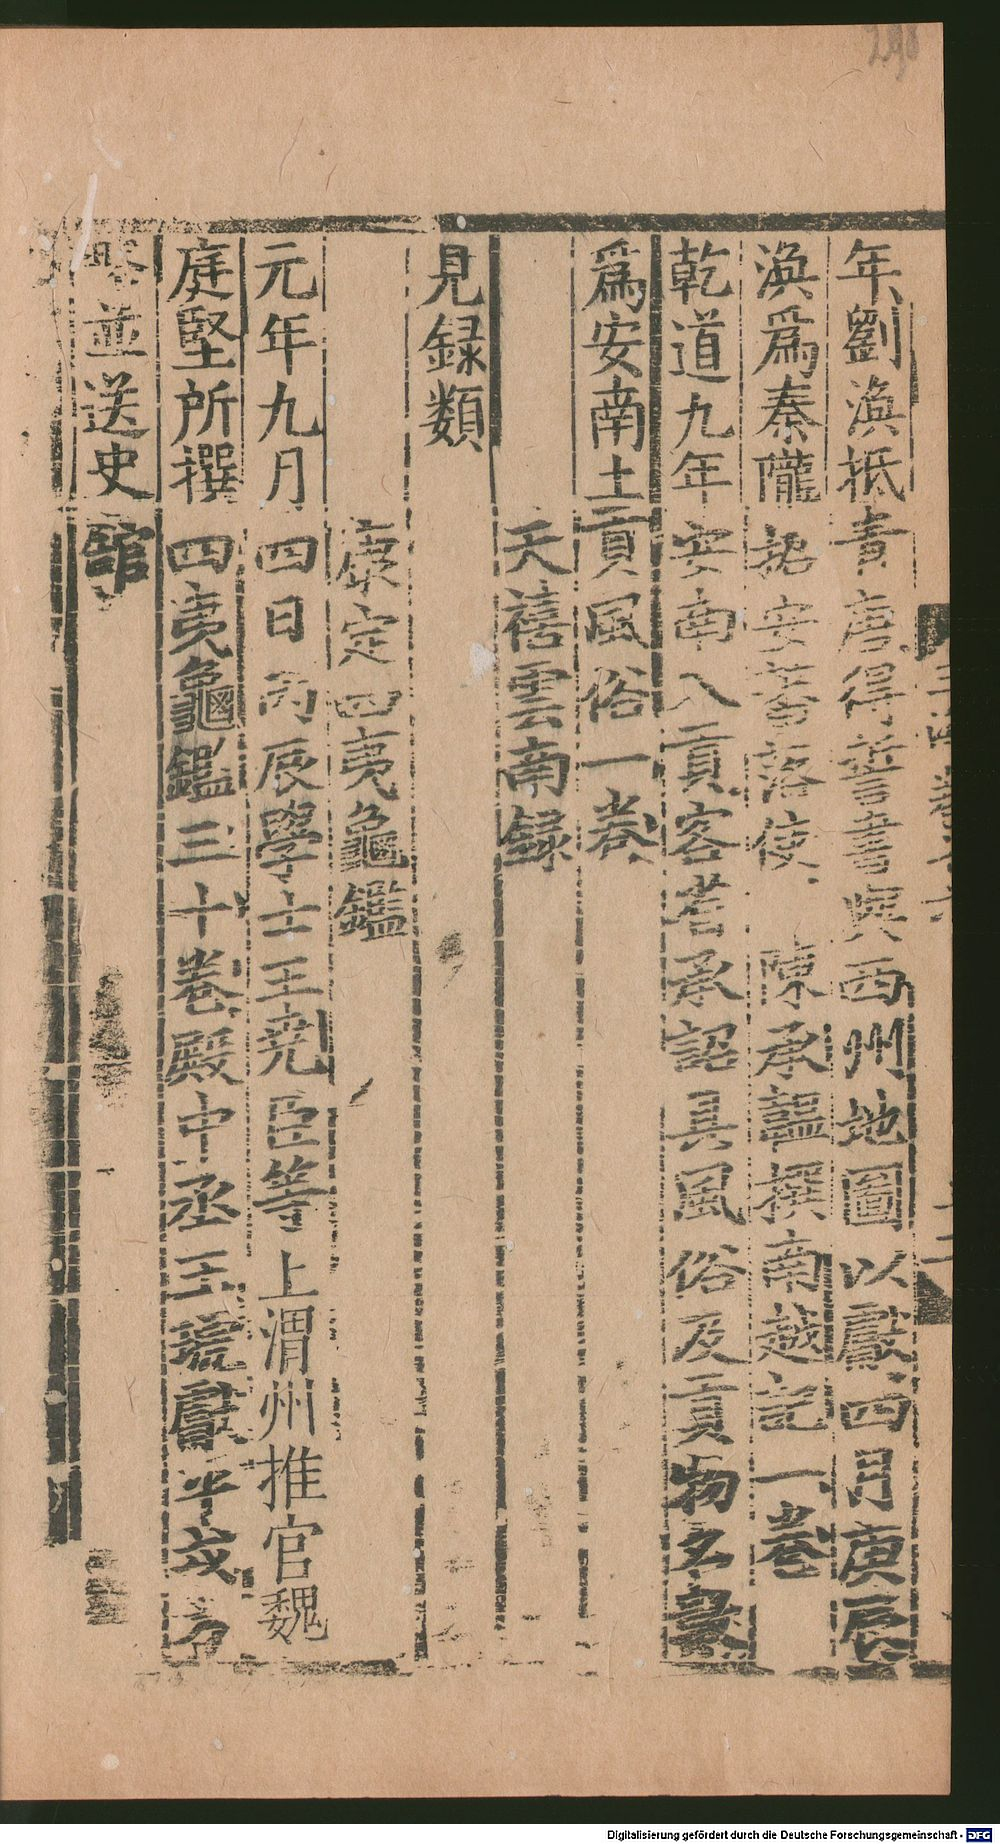 298
年劉渙抵青唐得誓書與西州地圖以獻四月庚辰
渙爲秦隴招安蕃落使 陳承韞撰南越記一卷
乾道九年安南入貢客省承詔具風俗及貢物名數
爲安南土貢風俗一卷
天禧雲南録
見録類
康定四夷龜鑑
元年九月四日丙辰學士王堯臣等上渭州推官魏
庭堅所撰四夷龜鑑三十卷殿中丞王琥獻平戎方
略並送史館
Digitalisierung gefördert durch die Deutsche Forschungsgemeinschaft - DFG